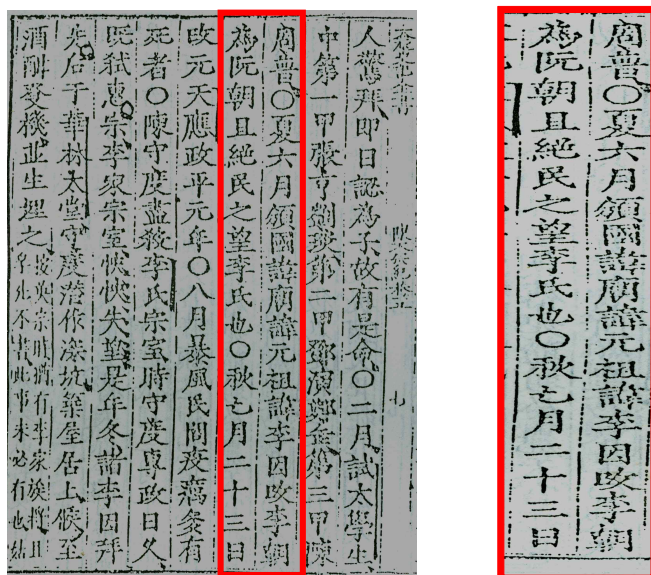 人驚拜即日認為子故有是命○二月試太學生
中第一甲張亨劉琰第二甲鄧演鄭缶第三甲陳
周普○夏六月頒國諱廟諱元祖諱李因改李朝
為阮朝且絶民之望李氏也○秋七月二十三日
改元天應政平元年○八月暴風民間疫癘多有
死者○陳守度盡殺李氏宗室時守度專政日久
既弑惠宗李家宗室怏怏失望是年冬諸李因拜
先后于華林太堂守度潜作深坑築屋居上候至
酒酣發機並生埋之
宗時猶有李家
此事未必有也姑
周普○夏六月頒國諱廟諱元祖諱李因改李朝
為阮朝且絶民之望李氏也○秋七月二十三日